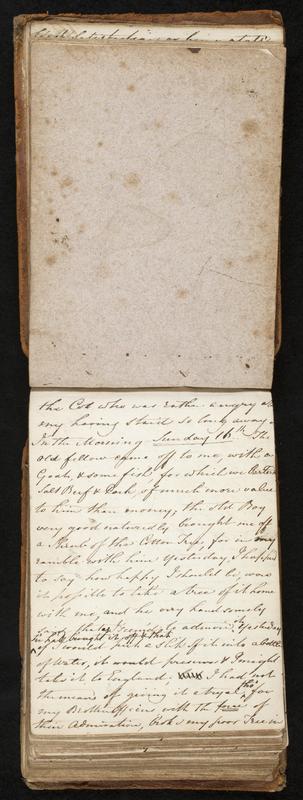 the Col who was rather angry at
my having staid so long away
In the Morning Sunday 16th The
old fellow came off to me, with a
Goat, & some fish, for which we
Salt Beef & Pork, of much more value
to him than money; the old Boy
very good naturedly brought me off
a Shrub of the Cotton Tree, for in my
ramble with him Yesterday, I happened
to say how happy I should be, was
it possible to take a tree of it home
with me, and he very handsomely
the day I seem'd to admire Yesterday
he had brought it off & that
if I would put a slip of it into a bottle
of Water, it would preserve & I might
take it to England. I had not
the means of giving it a tryal this for
my Brother officers with the force of
their Admiration, broke my poor Tree in